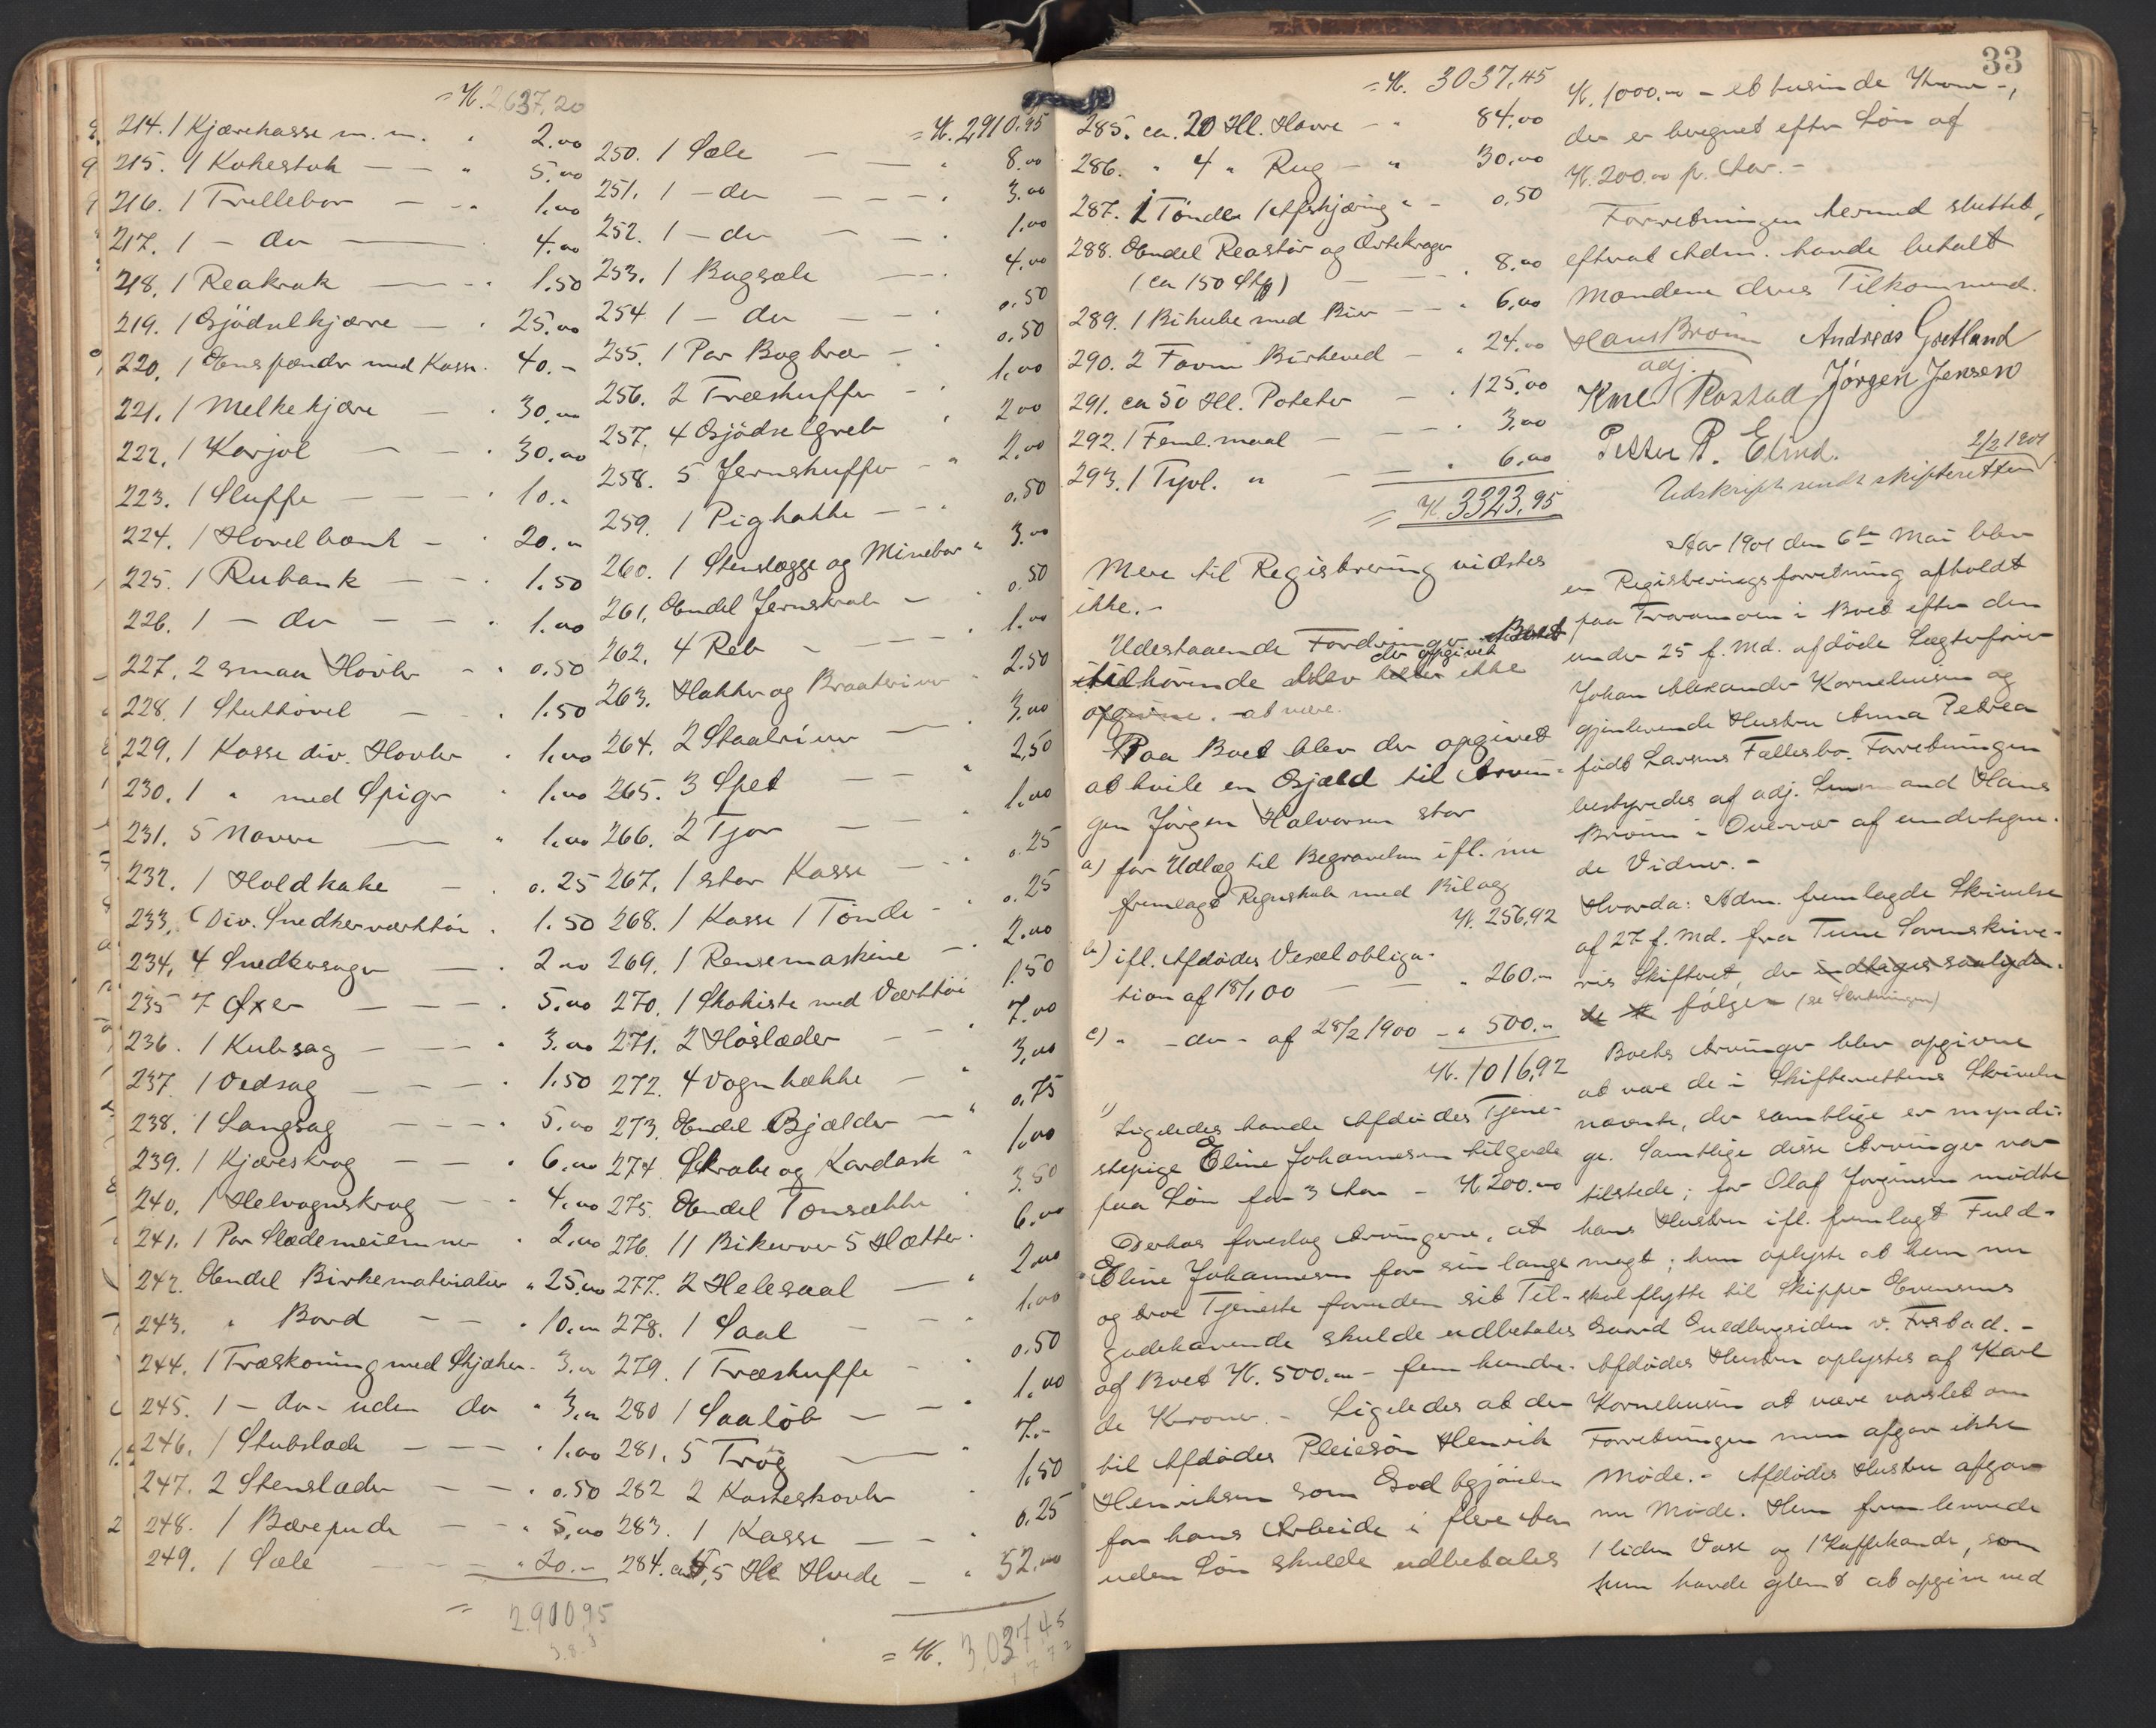 = K. 2,637,20
214. 1 Kjærekasse m. m. " 2.00
215. 1 Kokestok — — " 5.00
216. 1 Trillebør — — " 1.00
217. 1 — do — 4.00
218. 1 Reakrak — — " 1.50
219. 1 Gjödselkjærre — " 25.00
220. 1 Enspænder med Kasse. 40.-
221. 1 Melkekjærre — " 30.00
222. 1 Karjol — — " 30.00
223. 1 Sluffe — — " 10..
224. 1 Hövelbænk — " 20.00
225. 1 Rubank — — " 1.50
226. 1 — do — — " 1.00
227. 2 smaa Hövler — " 0.50
228. 1 Sluthövel — " 1.50
229. 1 Kasse div. Hövler " 1.00
230. 1 " med Spiger " 1.00
231. 5 Navere — " 1.00
232. 1 Holdhake — " 0.25
233. Div. Snedkerværktöi " 1.50
234. 4 Snedkersager — " 2.00
235 7 Øxer — — — " 5.00
236. 1 Kubsag — — — " 3.00
237. 1 Vedsag — — — " 1.50
238. 1 Langsag — — — " 5.00
239. 1 Kjæreskrog — — " 6.00
240. 1 Helvognskrog — — " 4.00
241. 1 Par Slædemeiemner " 2.00
242. Endel Birkematerialier " 25.00
243. " Bord — — " 10.00
244. 1 Træskoning med Skjæker " 3.00
245. 1 - do - uden do " 3.00
246. 1 Stubslæde — — — " 1.00
247. 2 Stenslæder — — " 0.50
248. 1 Bærepude — — " 5.00
249. 1 Sæle — — — " 20.-
= 2.910,95
= K. 2,910.95
250. 1 Sæle — — " 8.00
251. 1 — do — — — " 3.00
252. 1 — do — — " 1.00
253. 1 Bagsæle — — " 4.00
254 1 — do — — " 0.50
255. 1 Par Bogtrær — " 0.50
256. 2 Træskuffer — " 1.00
257. 4 Gjödselgreb " 2.00
258. 5 Jernskuffer — " 2.00
259. 1 Pighakke — — " 0.50
260. 1 Stenslægge og Minebor " 3.00
261. Endel Jernskrab — " 0.50
262. 4 Reb — — — " 1.00
263. Hakker og Braateriver " 2.50
264. 2 Staalriver — " 3.00
265. 3 Spet — — " 2,50
266. 2 Tjor — — " 1.00
267. 1 stor Kasse — — " 0.25
268. 1 Kasse 1 Tönde — " 0.25
269. 1 Rensemaskine — " 2.00
270. 1 Skokiste med Værktöi 1.50
271. 2 Höslæder — " 7.00
272. 4 Vognhække — " 3,00
273. Endel Bjælder — " 0.75
274. Skrabe og Kardask " 1,00
275. Endel Tönsække " 3.50
276. 11 Bikuver 5 Hætter. 6.00
277. 2 Helesaal — " 2,00
278. 1 Saal — — " 1.00
279. 1 Træskuffe — " 0.50
280 1 Saalöb — — " 1.00
281. 5 Trög — " 7.-
282 2 Kasteskovler " 1,50
283. 1 Kasse — — " 0.25
284. ca 5,5 Hl. Hvede — " 52.00
= K. 3,037,45
33
= K. 3037,45
285. ca. 20 Hl. Havre — " 84.00
286. " 4 " Rug — " 30.00
287. 1 Tönde 1 Afskjæring " - 0.50
288. Endel Reastör og Ertekrager
(ca 150 Stk) — — " 8.00
289. 1 Bikube med Bier — " 6.00
290. 2 Favn Birkeved — " 24.00
291. ca 50 Hl. Poteter — " 125.00
292. 1 Feml. maal — — — " 3.00
293. 1 Tyvl. " — — " 6.00
= K. 3323,95
Mere til Registrering vidstes
ikke.-
Udestaaende Fordringer Boet
tilhörende blev der opgivet ikke
opgivne. at være.
Paa Boet blev der opgivet
at hvile en Gjæld til Arvin-
gen Jörgen Halvorsen stor
a) for Udlæg til Begravelsen ifl. nu
fremlagt Regnskab med Bilag
K. 256,92
b) ifl. Afdödes Vexelobliga-
tion af 18/1 00 — — " 260.-
c) " - do - af 28/2 1900 - " 500.-
K. 1016,92
Ligeledes havde Afdödes Tjene-
stepige Eline Johannesen tilgode
paa Lön for 3 Aar - K. 200.00
Derhos foreslog Arvingerne, at
Eline Johannesen for sin lange
og tro Tjeneste foruden sit Til-
godehavende skulde udbetales
af Boet K. 500.00 - fem hundre-
de Kroner. - Ligeledes at der
til Afdödes Pleiesön Henrik
Henriksen som Godtgjörelse
for hans Arbeide i flere Aar
uden Lön skulde udbetales
K. 1000.00 - et tusinde Kroner -,
der er beregnet efter Lön af
K. 200.00 pr. Aar. -
Forretningen hermed sluttet,
efterat Adm. havde betalt
Mændene deres Tilkommende.
Hans Brönn Andreas Grætland
adj.
Karl Rostad Jörgen Jensen
Petter P. Elind.
2/2 1901
Udskrift sendt skifteretten
Aar 1901 den 6te Mai blev
en Registreringsforretning afholdt
paa Traramoen i Boet efter den
under 25 f. Md. afdöde Lægterfører
Johan Alexander Kornelius­sen og
gjenlevende Hustru Anna Petrea
födt Larsens Fællesbo. Forretningen
bestyredes af adj. Lensmand Hans
Brönn i Overvær af undertegne-
de Vidner. -
Hvorda: Adm. fremlagde Skrivelse
af 27 f. Md. fra Tune Sorenskrive-
ris Skifteret, der indtages saalyden-
de følger (se Slutningen)
Boets Arvinger blev opgivne
at være de i Skifterettens Skrivelse
nævnte, der samtlige er myndi-
ge. Samtlige disse Arvinger var
tilstede; for Olaf Jorginsen mödte
hans Hustru ifl. fremlagt Fuld-
magt; hun oplyste at hun nu
skal flytte til Skipper Evensens
Gaard Guldbergsiden v. Fr.stad. -
Afdödes Hustru oplystes af Karl
Korneliussen at være varslet om
Forretningen men afgav ikke
Möde. - Afdödes Hustru afgav
nu Möde. Hun fremleverede
1 liden Vase og 1 Kaffekande, som
hun havde glemt at opgive ved